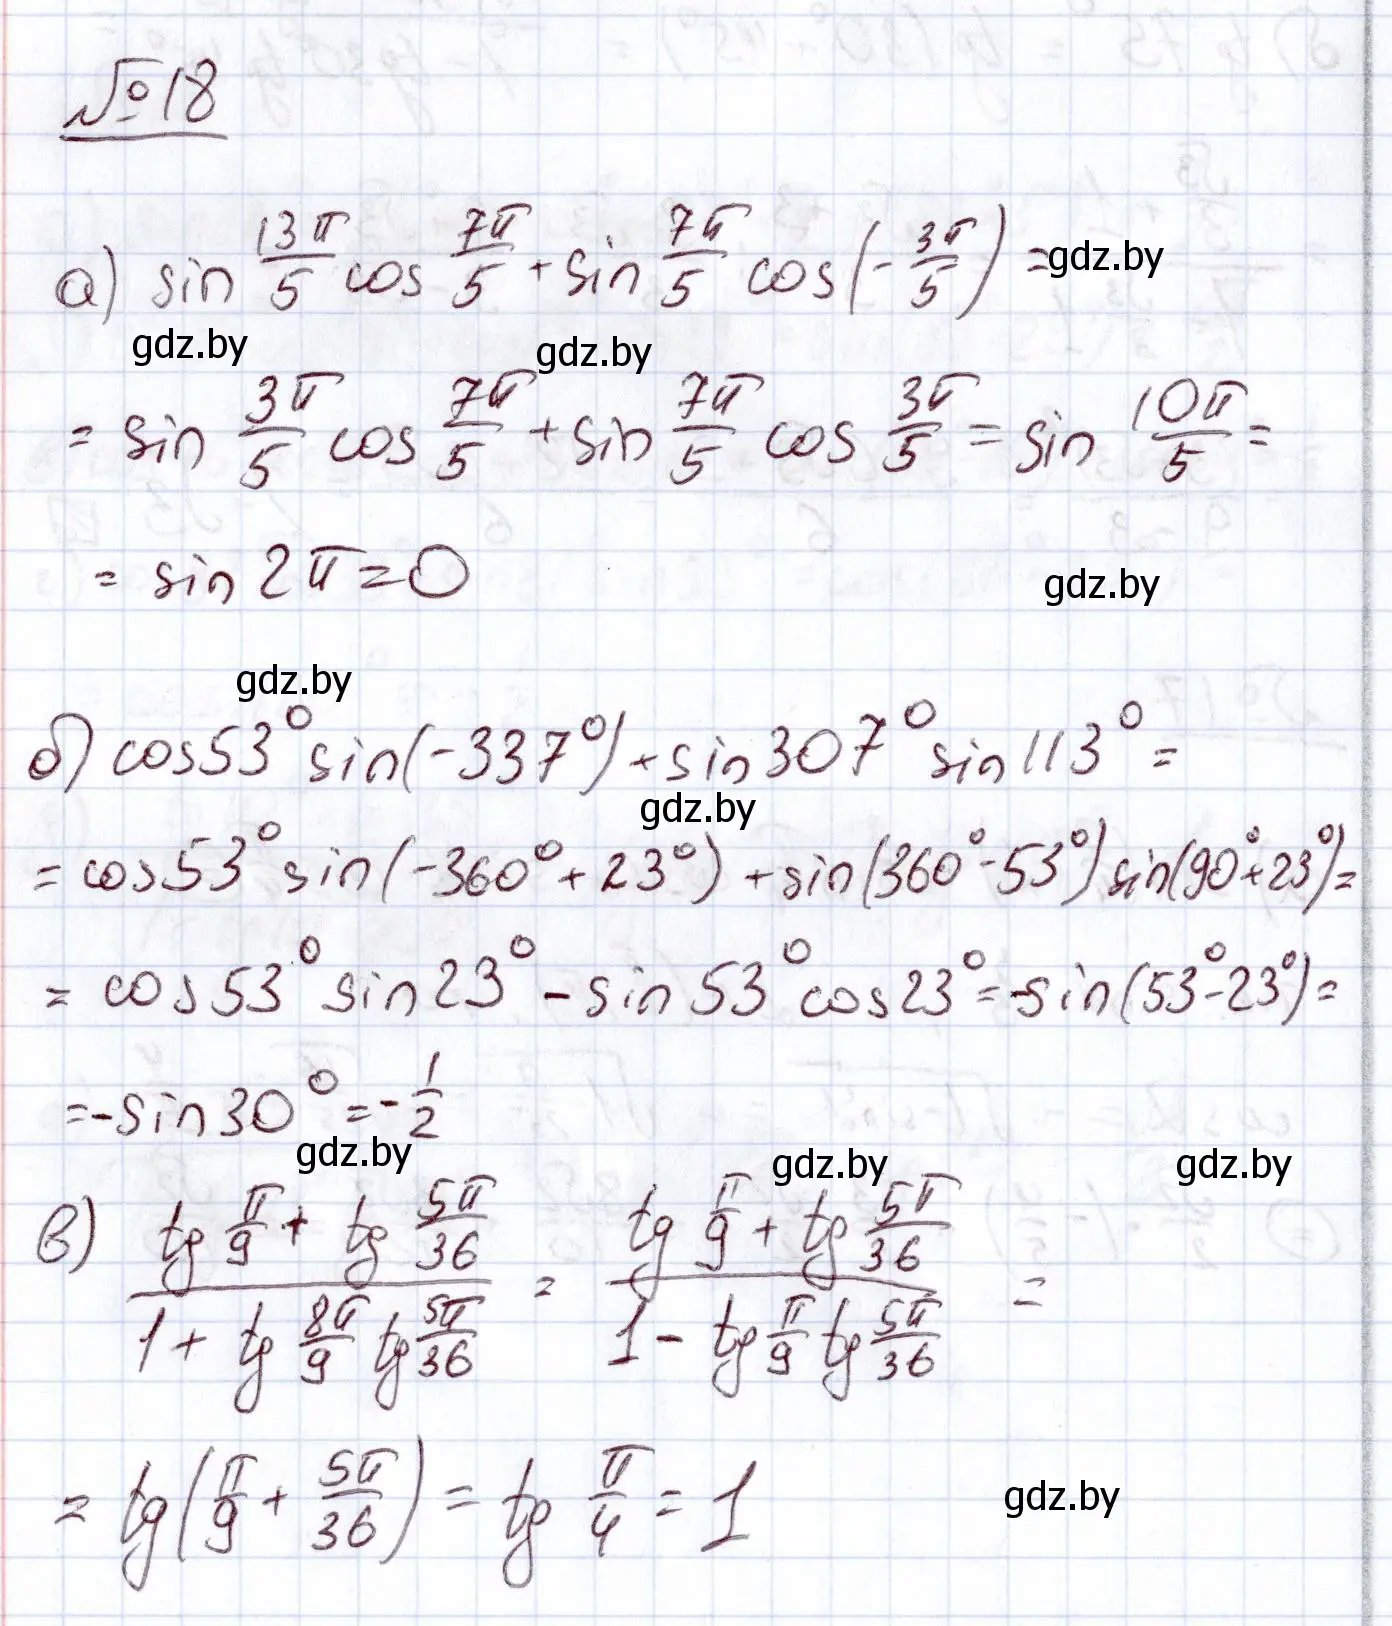 №18
а) sin 13π/5 cos 7π/5 + sin 7π/5 cos(-3π/5) = gdz.by
gdz.by gdz.by
= sin 3π/5 cos 7π/5 + sin 7π/5 cos 3π/5 = sin 10π/5 =
= sin 2π = 0
gdz.by
gdz.by
б) cos53° sin(-337°) + sin307° sin113° =
gdz.by
= cos53° sin(-360° + 23°) + sin(360° - 53°) sin(90° + 23°) =
= cos53° sin23° - sin53° cos23° = -sin(53° - 23°) =
= -sin30° = -1/2
gdz.by gdz.by gdz.by
в) (tg π/9 + tg 5π/36)/(1 + tg 8π/9 tg 5π/36) = (tg π/9 + tg 5π/36)/(1 - tg π/9 tg 5π/36) =
= tg(π/9 + 5π/36) = tg π/4 = 1
gdz.by